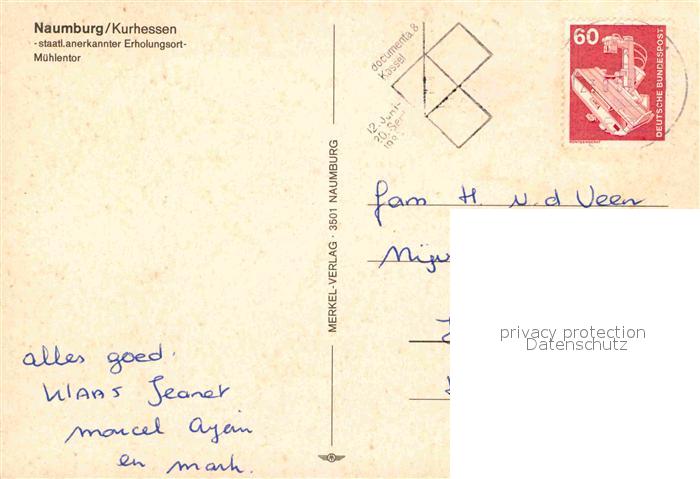 Naumburg/Kurhessen
-staatl.anerkannter Erholungsort-
Mühlentor
documenta 8
Kassel
12. Juni-
20. Se
19
60
DEUTSCHE BUNDESPOST
MERKEL-VERLAG · 3501 NAUMBURG
fam H. v. d Veen
alles goed.
Klaas Jeanet
marcel Arjen
en mark.
privacy protection
Datenschutz